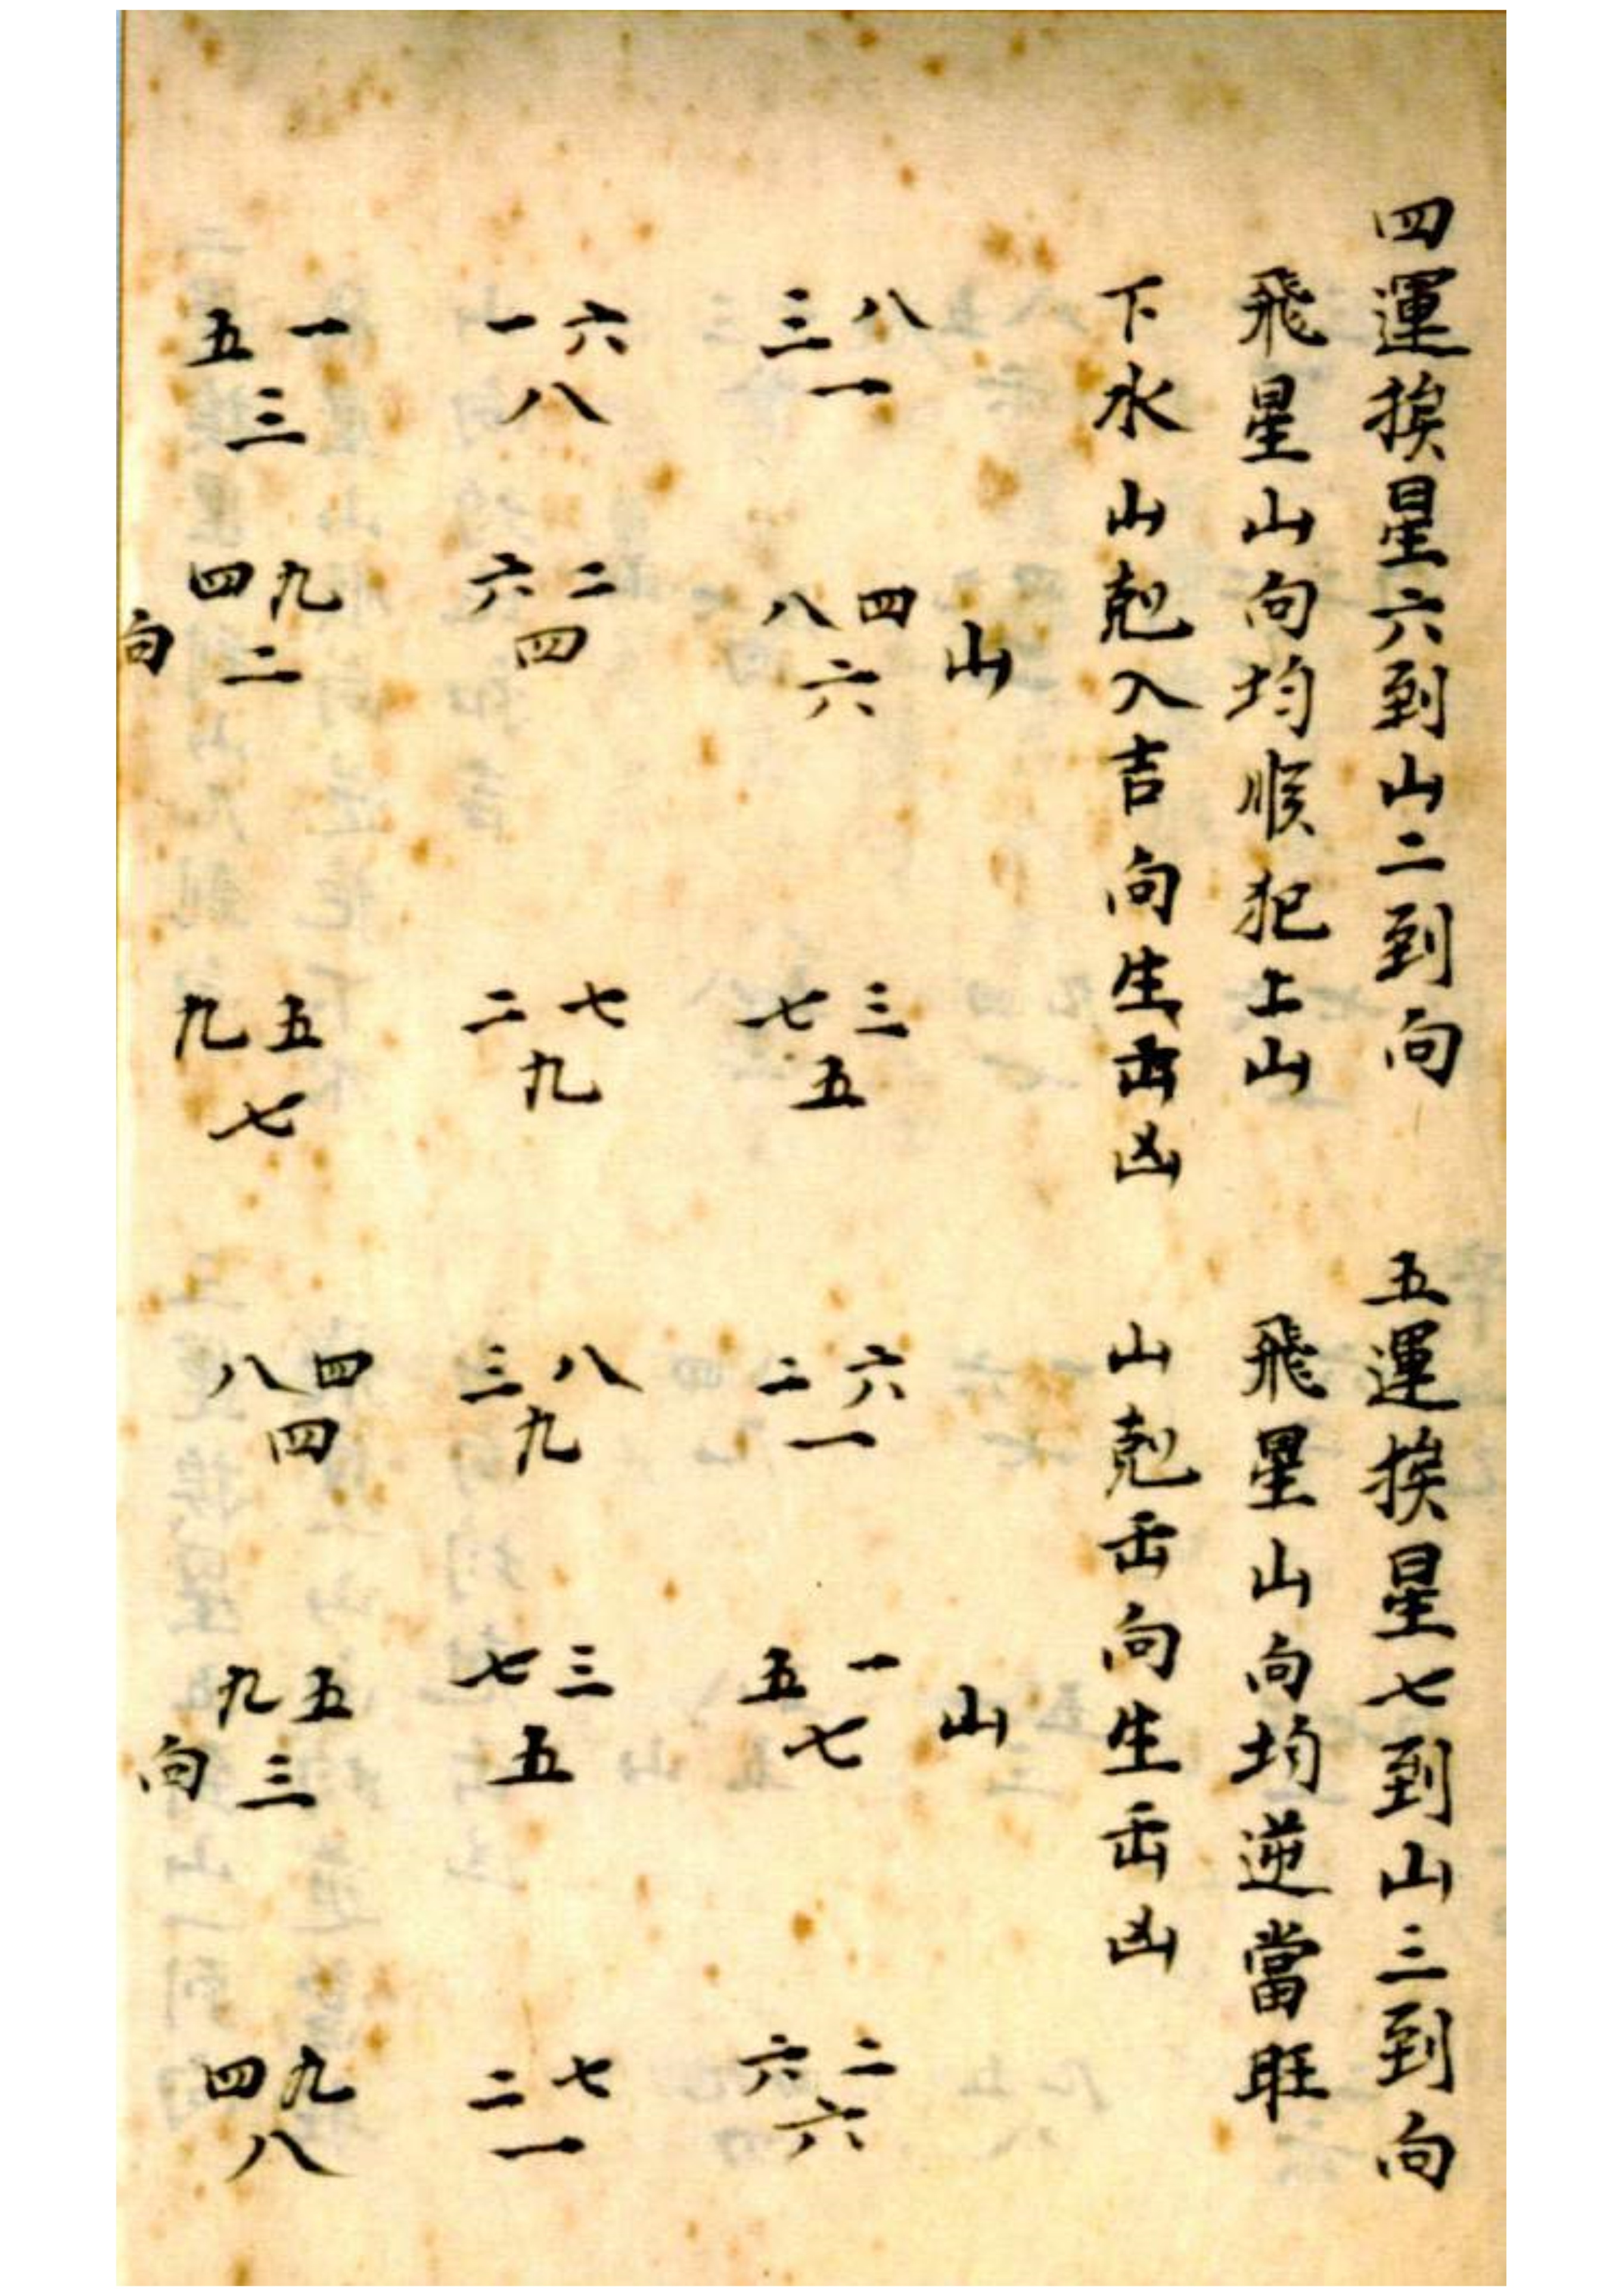 四運挨星六到山二到向
飛星山向均順犯上山
下水山尅入吉向生出凶
山
八三 一 四八 六 三七 五
六一 八 二六 四 七二 九
一五 三 九四 二 五九 七
向
五運挨星七到山三到向
飛星山向均逆當旺
山尅出向生出凶
山
六二 一 一五 七 二六 六
八三 九 三七 五 七二 一
四八 四 五九 三 九四 八
向